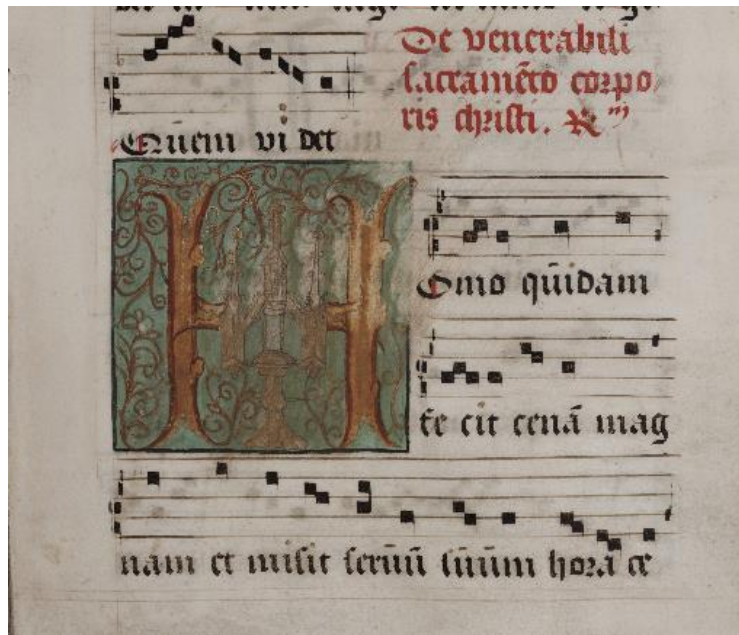 De venerabili
sacramēto corpo
ris christi. R
Quem vi det
Homo qūidam
fe cit cenā mag
nam et misit seruū sūum hora ce